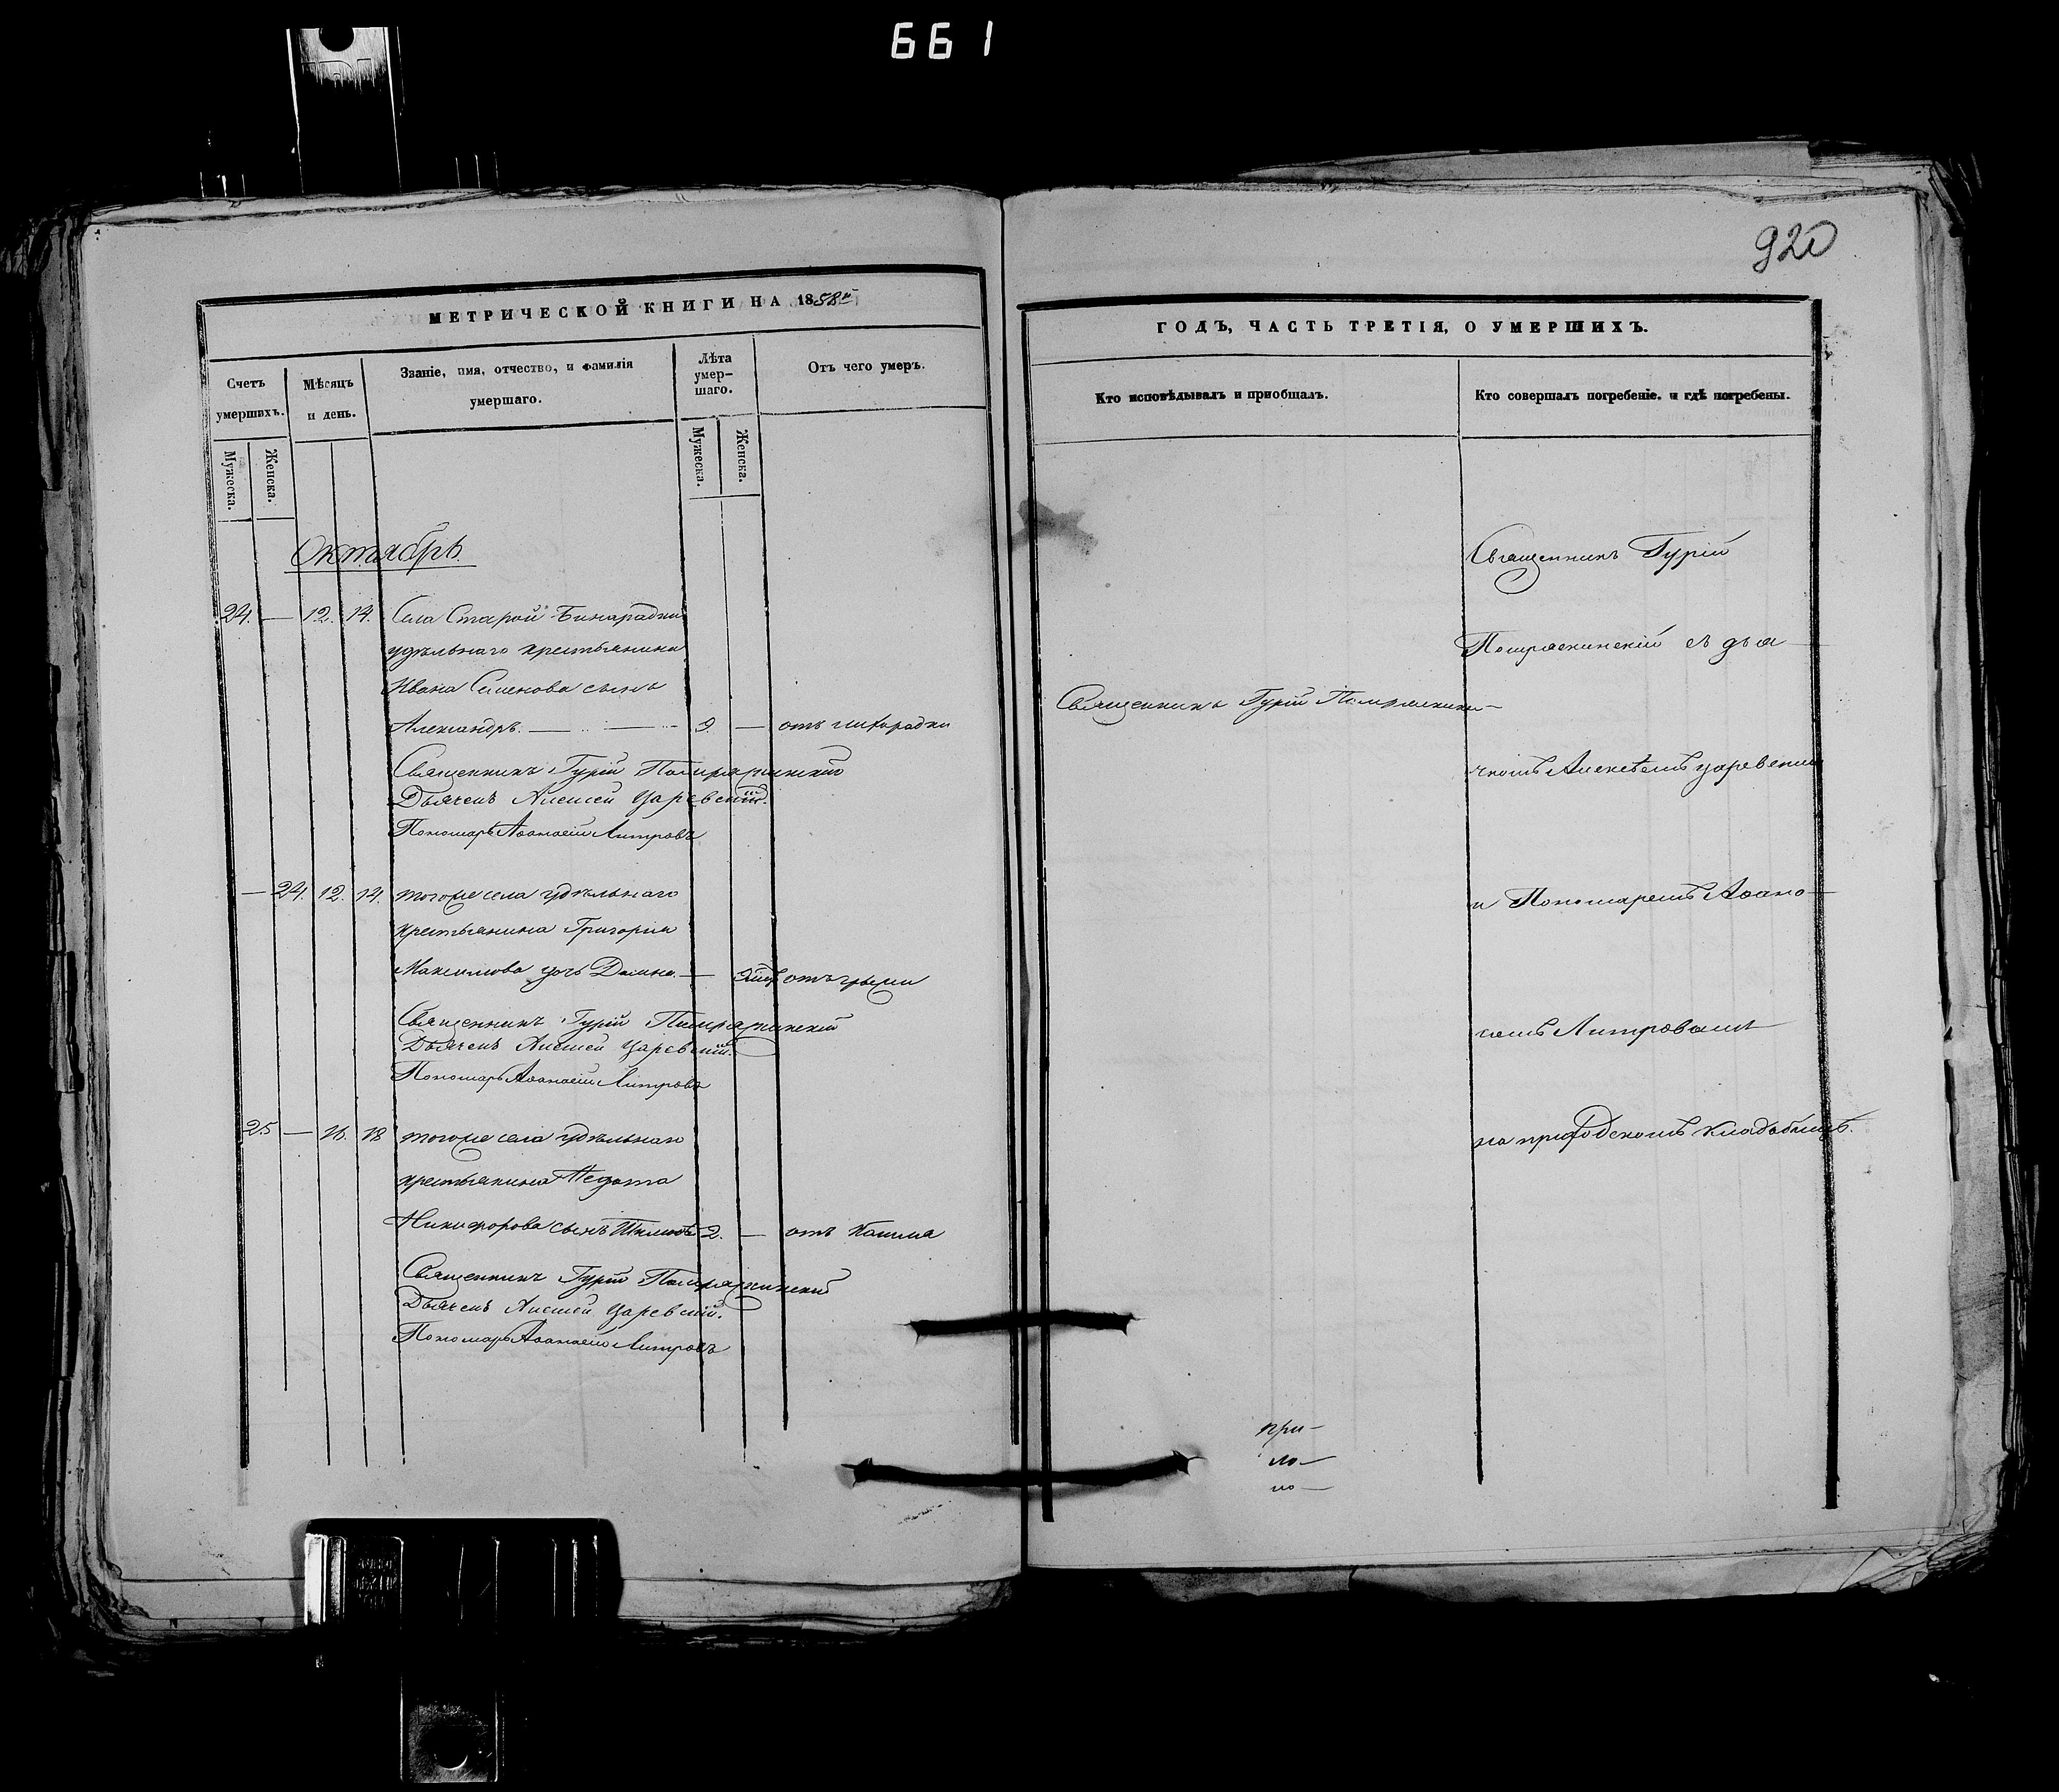 661
920
МЕТРИЧЕСКОЙ КНИГИ НА 1858й
Счетъ умершихъ.
Мужеска.
Женска.
Мѣсяцъ и день.
Званіе, имя, отчество, и фамилія
умершаго.
Лѣта умер-
шаго.
Мужеска.
Женска.
Отъ чего умеръ.
Октябрь.
24. — 12. 14. Села Старой Бинарадки
удѣльнаго крестьянина
Ивана Семенова сынъ
Александръ. — 9. — отъ лихорадки
Священникъ Гурій
Дьячекъ Алексей Царевскій.
Пономарь Аѳанасій Литровъ
— 24. 12. 14. тогоже села удѣльнаго
крестьянина Григорія
Максимова дочь — отъ грыжи
Священникъ Гурій
Дьячекъ Алексей Царевскій.
Пономарь Аѳанасій Литровъ
25 — 16. 18 тогоже села удѣльнаго
крестьянина Ѳедота
Никифорова сынъ 2. — отъ кашля
Священникъ Гурій
Дьячекъ Алексей Царевскій.
Пономарь Аѳанасій Литровъ
ГОДЪ, ЧАСТЬ ТРЕТІЯ, О УМЕРШИХЪ.
Кто исповѣдывалъ и приобщалъ.
Кто совершалъ погребеніе. и гдѣ погребены.
Священникъ Гурій
Священникъ Гурій
съ дья
чкомъ Алексѣемъ Царевским
и Пономаремъ Аѳана—
сіемъ Литровымъ
на приходскомъ кладбищѣ.
при—
ло—
но—